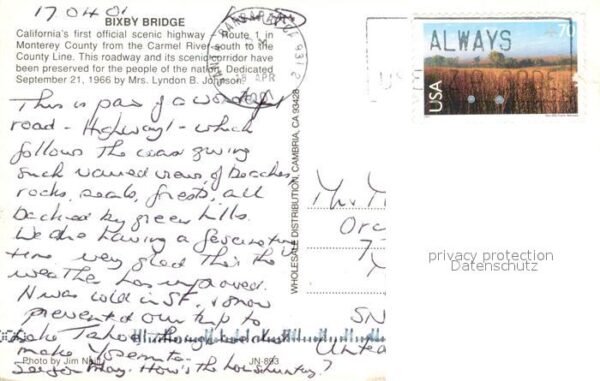 17 04 01
BIXBY BRIDGE
California's first official scenic highway — Route 1 in
Monterey County from the Carmel River south to the
County Line. This roadway and its scenic corridor have
been preserved for the people of the nation. Dedicated
September 21, 1966 by Mrs. Lyndon B. Johnson.
SANTA BARBARA, CA 931 2
APR
2001
ALWAYS
70
USA
This is part of a wonderful
road - Highway 1 - which
follows the coast giving
such varied views, of beaches,
rocks, seals, forests, all
backed by green hills.
We are having a fascinating
time very glad the
weather has improved.
It was cold in SF, & snow
prevented our trip to
Lake Tahoe though
make Yosemite.
See you May. How's the house hunting?
WHOLESALE DISTRIBUTION, CAMBRIA, CA 93428
Mrs
SN
Unite
privacy protection
Datenschutz
Photo by Jim
JN-893